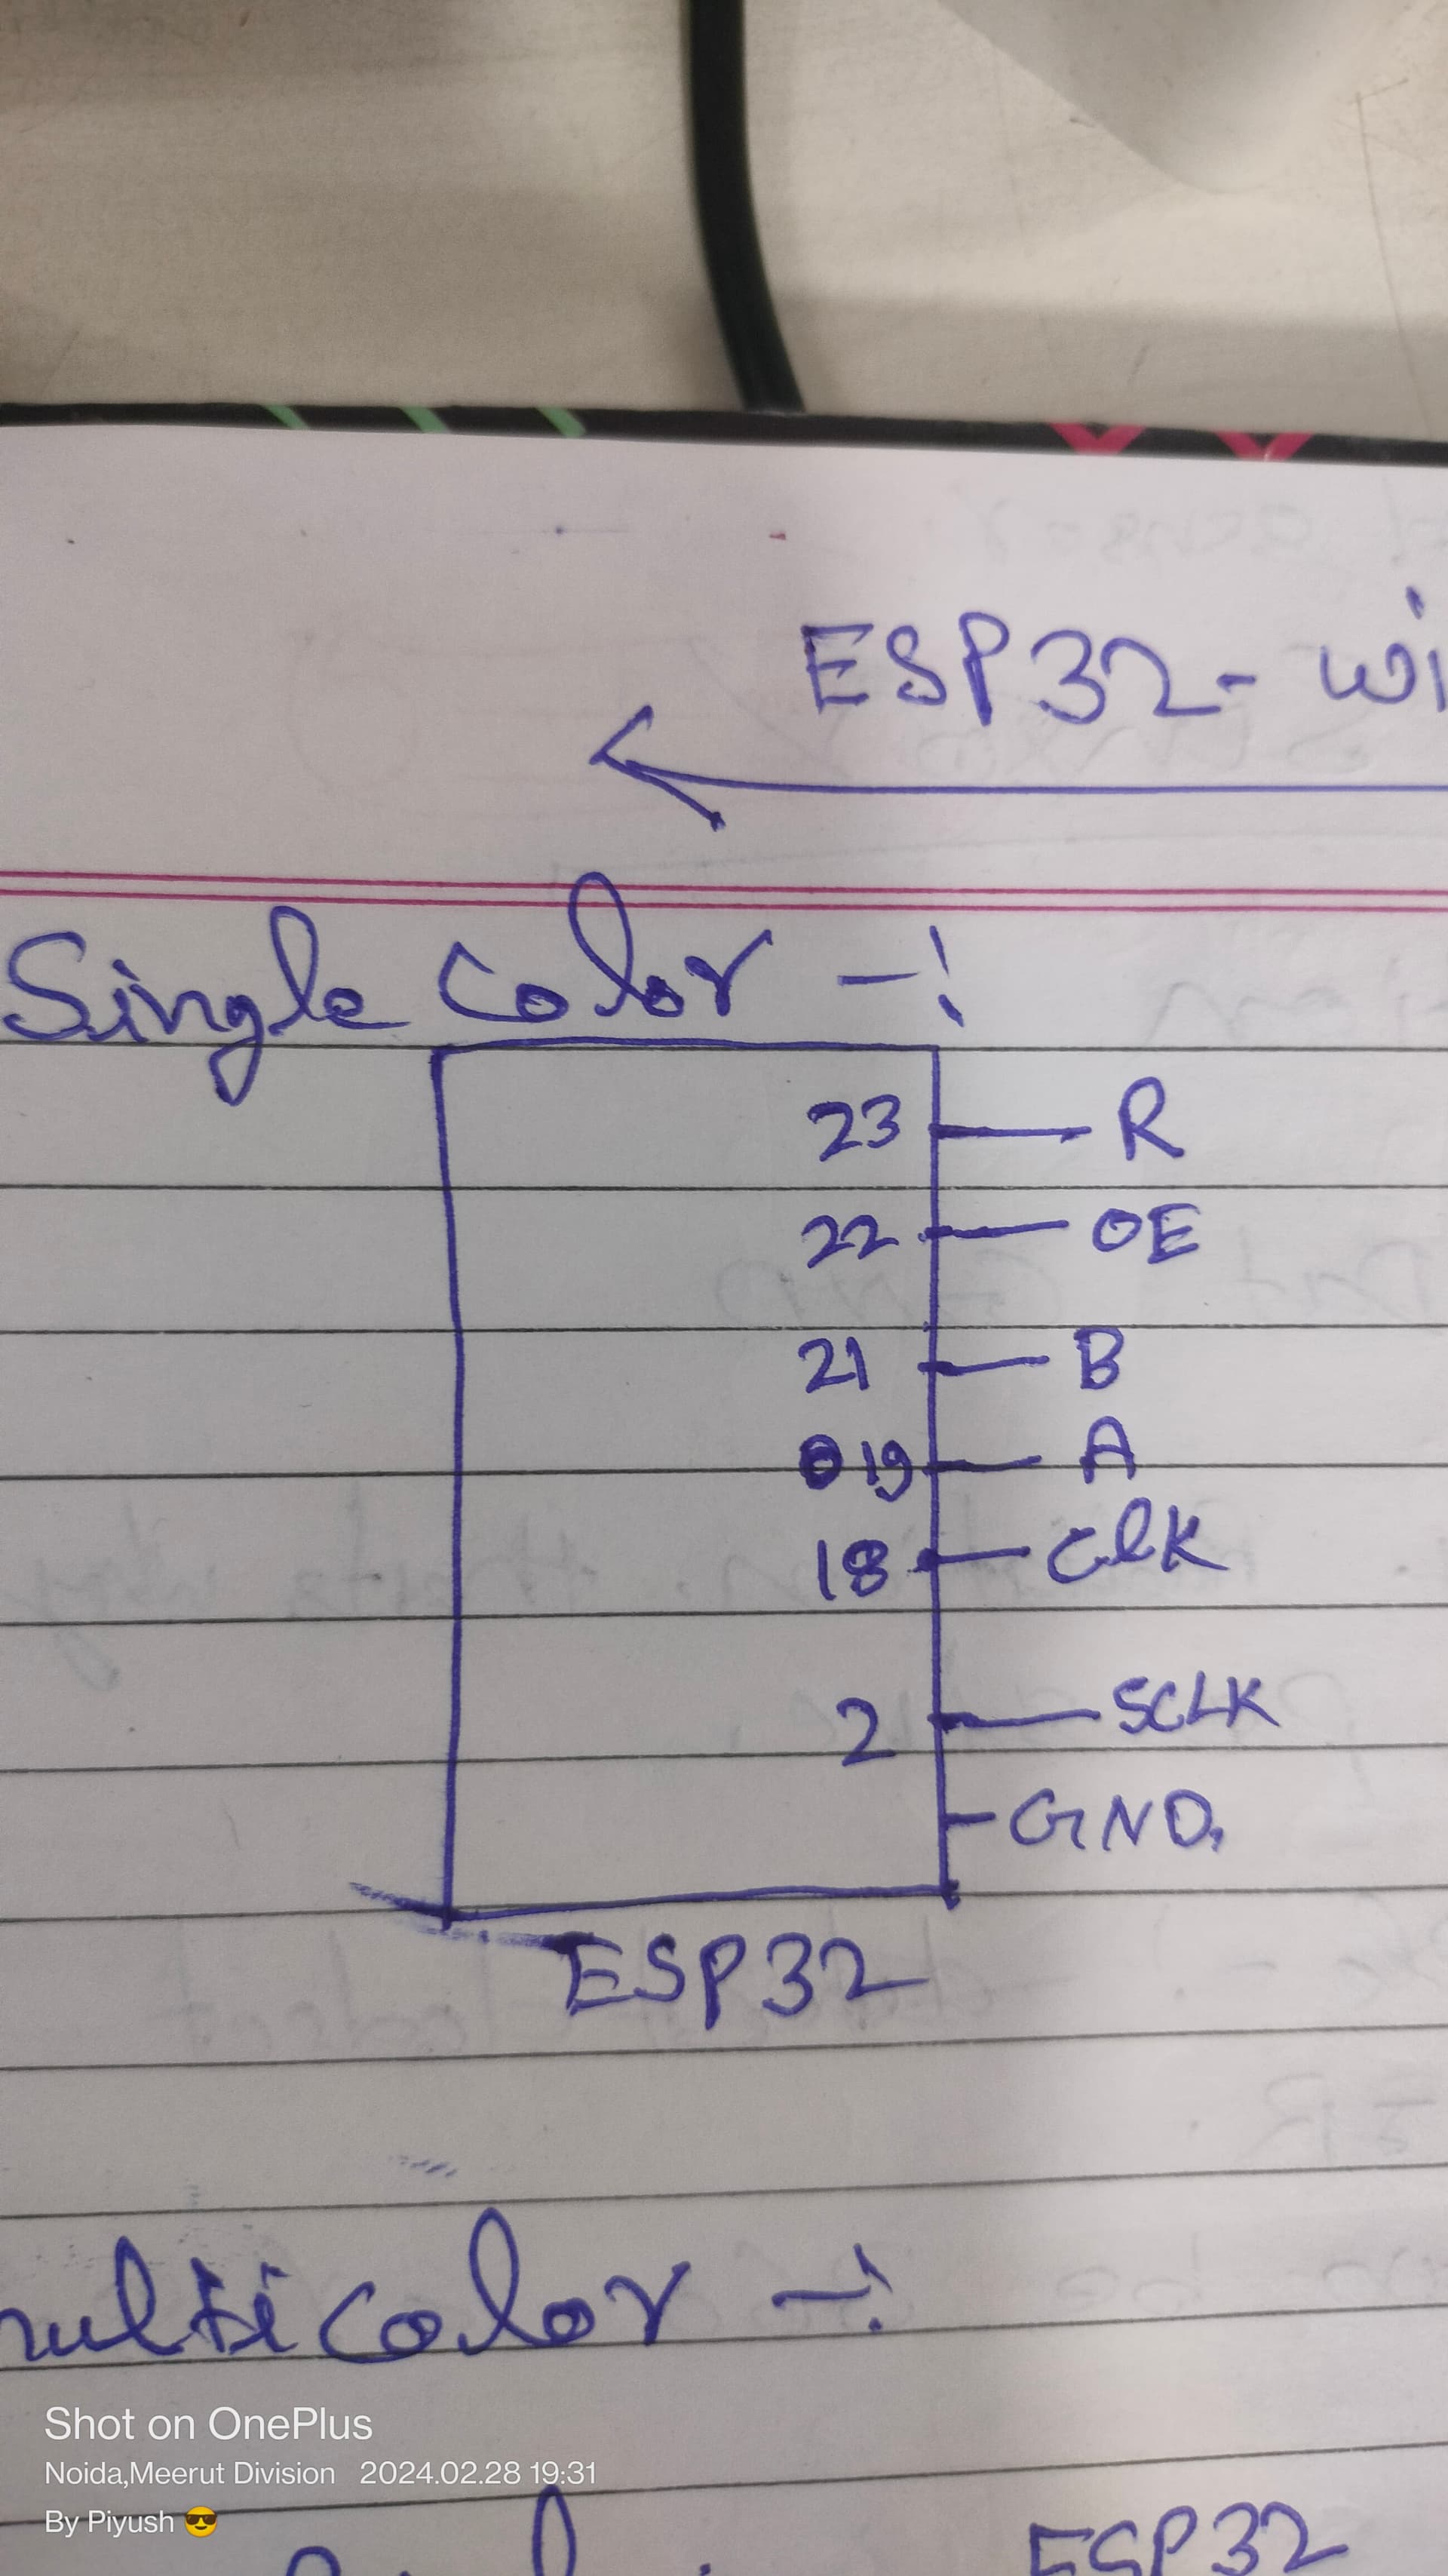 ESP32- wi
Single Color -:
23 R
22 OE
21 B
19 A
18 ClK
2 SCLK
GND.
ESP32
multicolor -:
Shot on OnePlus
Noida,Meerut Division 2024.02.28 19:31
By Piyush 😎
ESP32